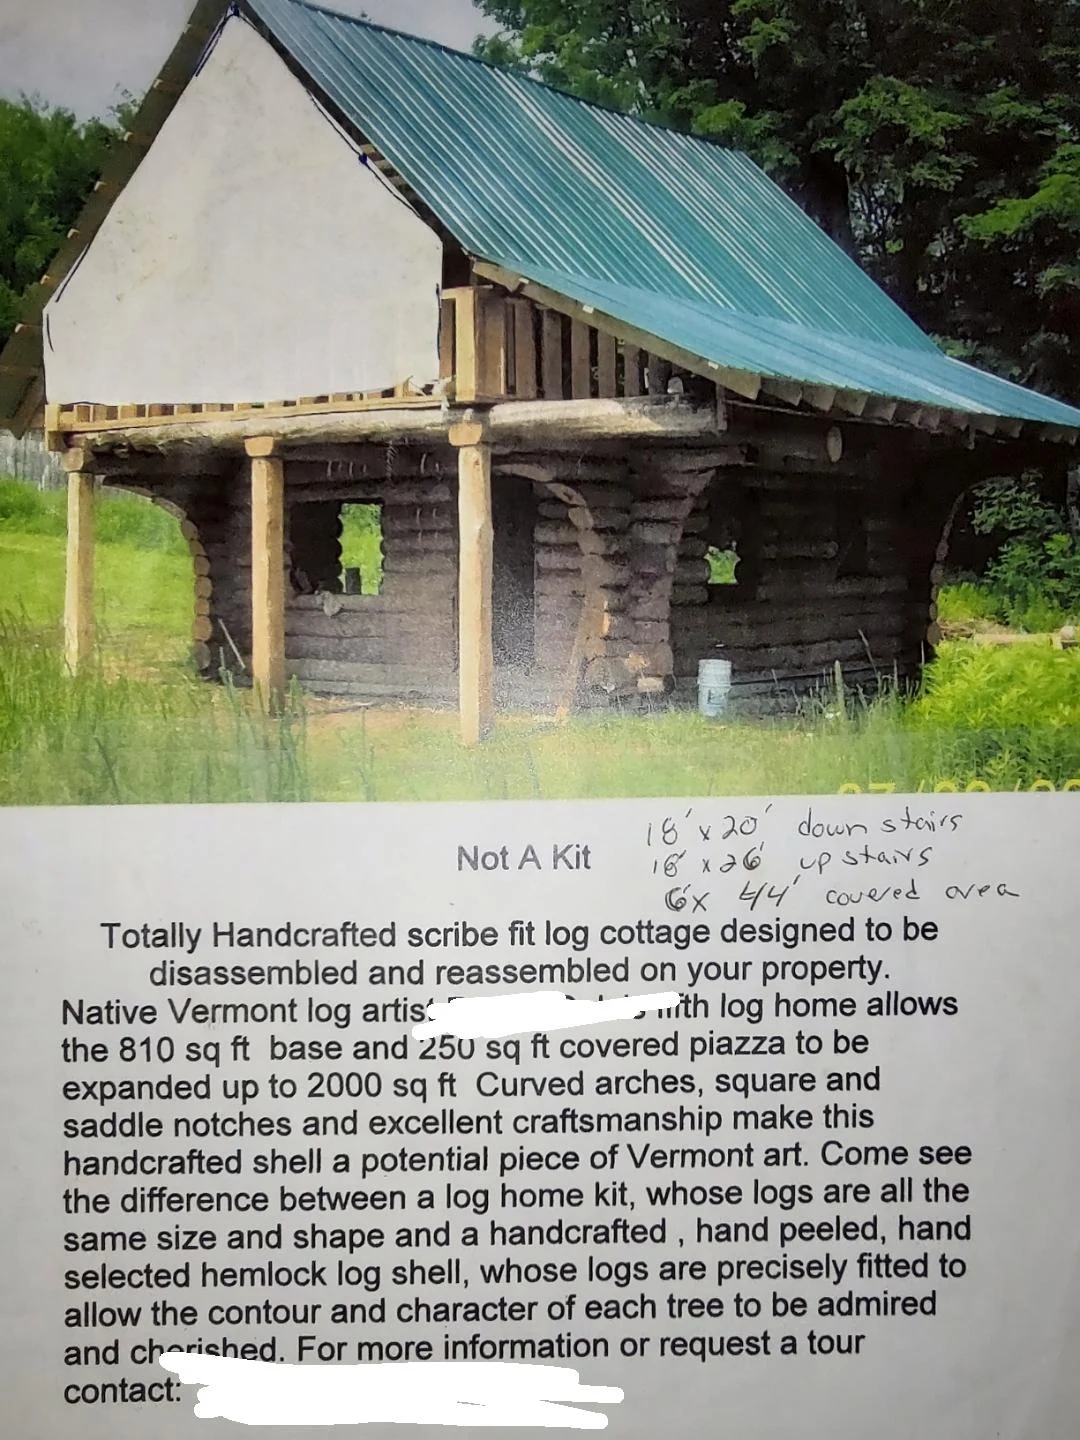 Not A Kit
18' x 20' down stairs
18' x 26' up stairs
6' x 44' covered area
Totally Handcrafted scribe fit log cottage designed to be
disassembled and reassembled on your property.
Native Vermont log artist log home allows
the 810 sq ft base and 250 sq ft covered piazza to be
expanded up to 2000 sq ft Curved arches, square and
saddle notches and excellent craftsmanship make this
handcrafted shell a potential piece of Vermont art. Come see
the difference between a log home kit, whose logs are all the
same size and shape and a handcrafted , hand peeled, hand
selected hemlock log shell, whose logs are precisely fitted to
allow the contour and character of each tree to be admired
and cherished. For more information or request a tour
contact: